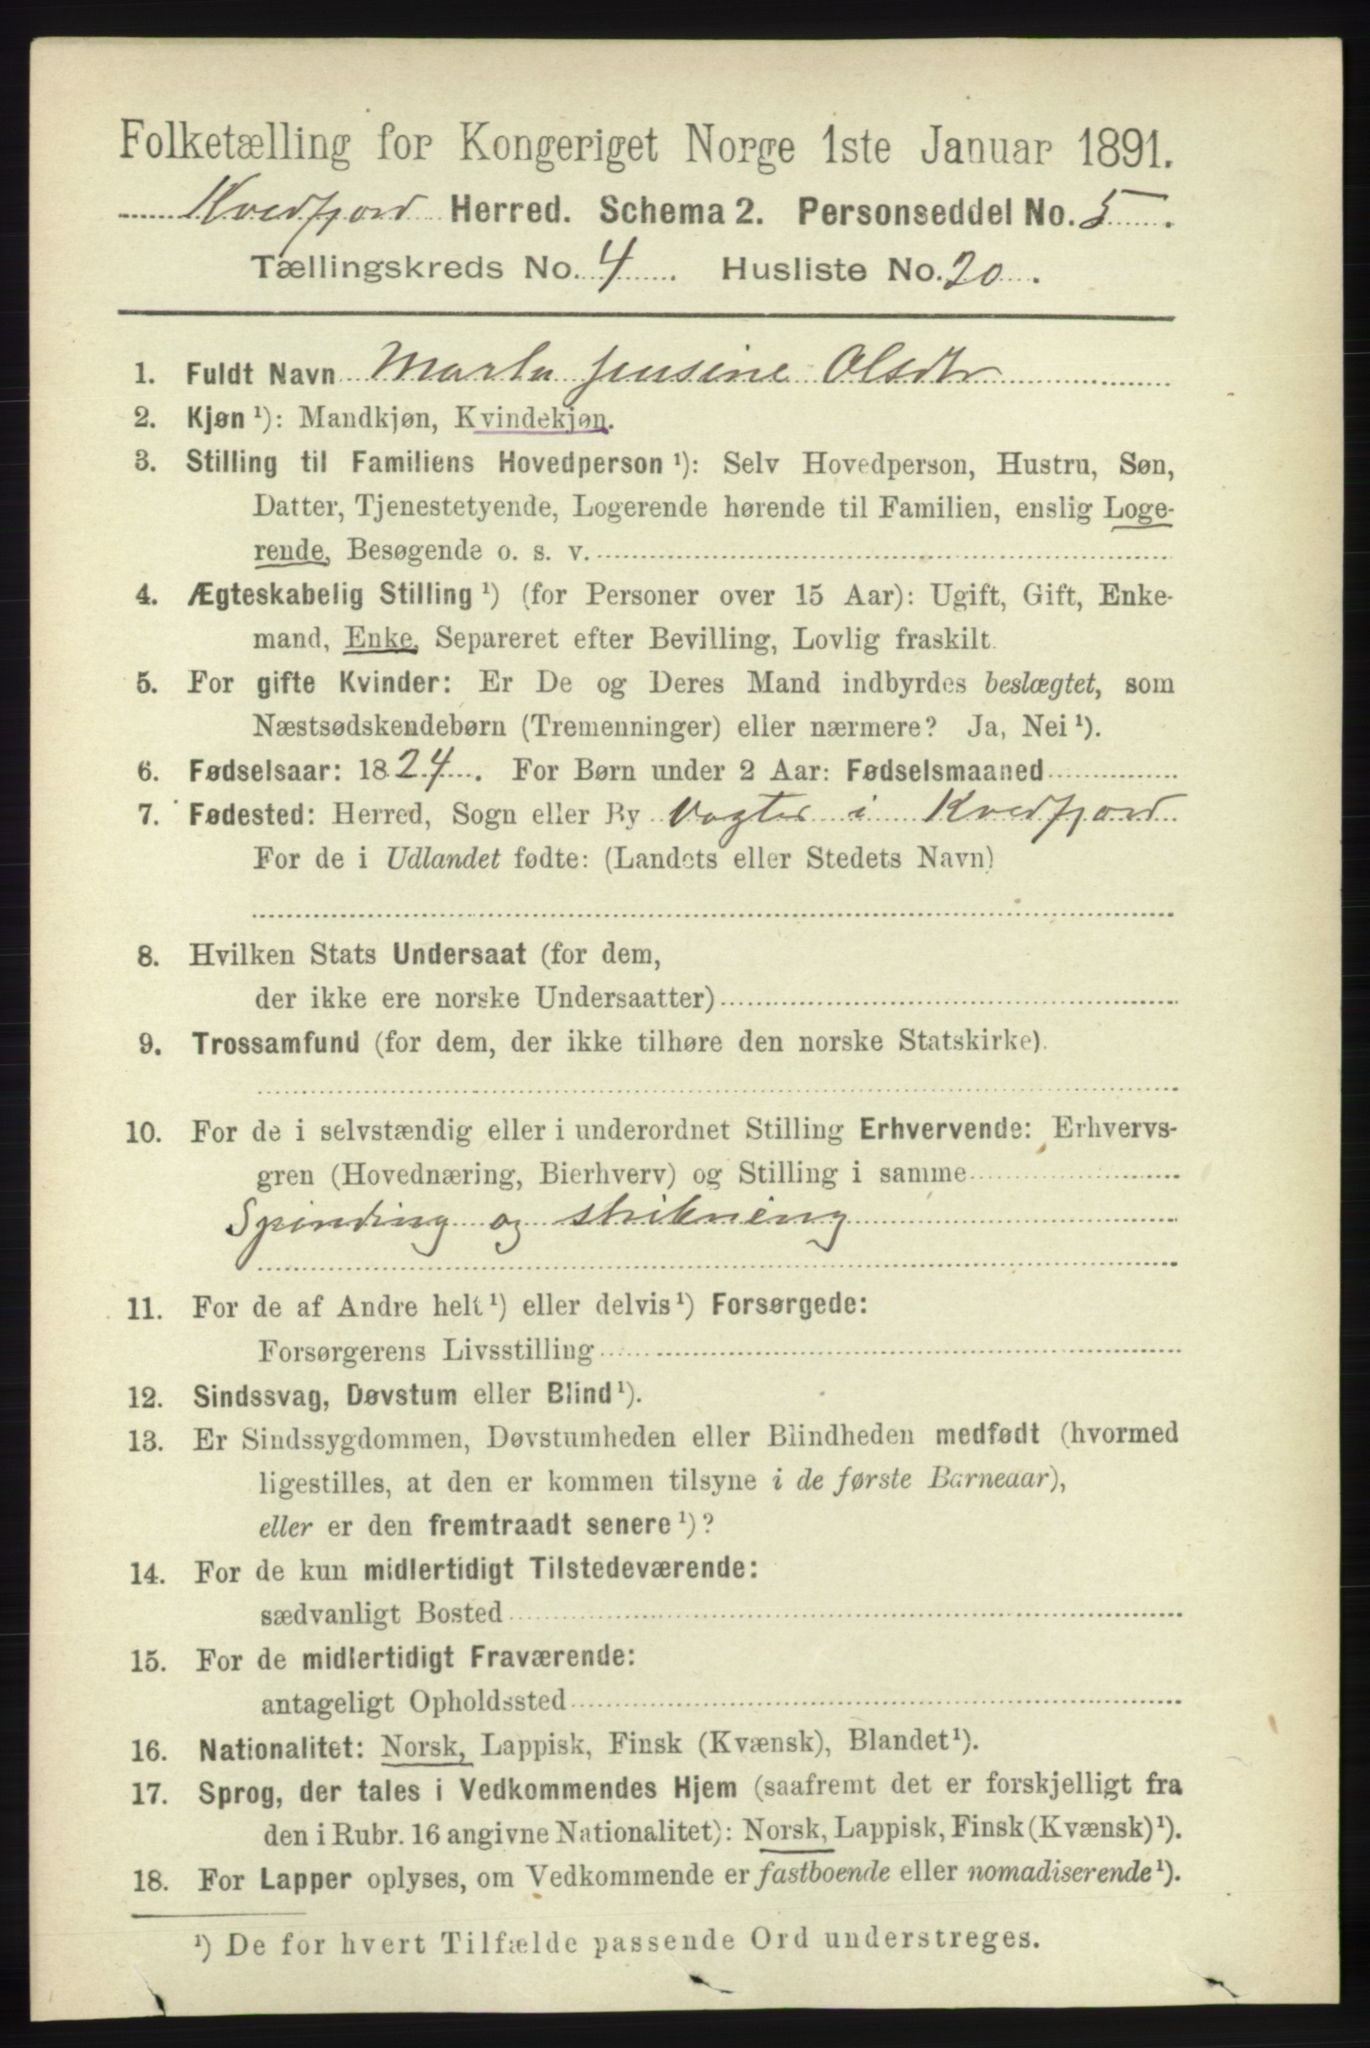 Folketælling for Kongeriget Norge 1ste Januar 1891.
Kvedfjord Herred. Schema 2. Personseddel No. 5.
Tællingskreds No. 4. Husliste No. 20.
1. Fuldt Navn Marta Jensine Olsdtr
2. Kjøn ¹): Mandkjøn, Kvindekjøn.
3. Stilling til Familiens Hovedperson ¹): Selv Hovedperson, Hustru, Søn,
Datter, Tjenestetyende, Logerende hørende til Familien, enslig Loge-
rende, Besøgende o. s. v.
4. Ægteskabelig Stilling ¹) (for Personer over 15 Aar): Ugift, Gift, Enke-
mand, Enke, Separeret efter Bevilling, Lovlig fraskilt.
5. For gifte Kvinder: Er De og Deres Mand indbyrdes beslægtet, som
Næstsødskendebørn (Tremenninger) eller nærmere? Ja, Nei ¹).
6. Fødselsaar: 1824. For Børn under 2 Aar: Fødselsmaaned
7. Fødested: Herred, Sogn eller By Vogter i Kvedfjord
For de i Udlandet fødte: (Landets eller Stedets Navn)
8. Hvilken Stats Undersaat (for dem,
der ikke ere norske Undersaatter)
9. Trossamfund (for dem, der ikke tilhøre den norske Statskirke).
10. For de i selvstændig eller i underordnet Stilling Erhvervende: Erhvervs-
gren (Hovednæring, Bierhverv) og Stilling i samme
Spinding og strikning
11. For de af Andre helt ¹) eller delvis ¹) Forsørgede:
Forsørgerens Livsstilling
12. Sindssvag, Døvstum eller Blind ¹).
13. Er Sindssygdommen, Døvstumheden eller Blindheden medfødt (hvormed
ligestilles, at den er kommen tilsyne i de første Barneaar),
eller er den fremtraadt senere ¹)?
14. For de kun midlertidigt Tilstedeværende:
sædvanligt Bosted
15. For de midlertidigt Fraværende:
antageligt Opholdssted
16. Nationalitet: Norsk, Lappisk, Finsk (Kvænsk), Blandet ¹).
17. Sprog, der tales i Vedkommendes Hjem (saafremt det er forskjelligt fra
den i Rubr. 16 angivne Nationalitet): Norsk, Lappisk, Finsk (Kvænsk) ¹).
18. For Lapper oplyses, om Vedkommende er fastboende eller nomadiserende ¹).
¹) De for hvert Tilfælde passende Ord understreges.